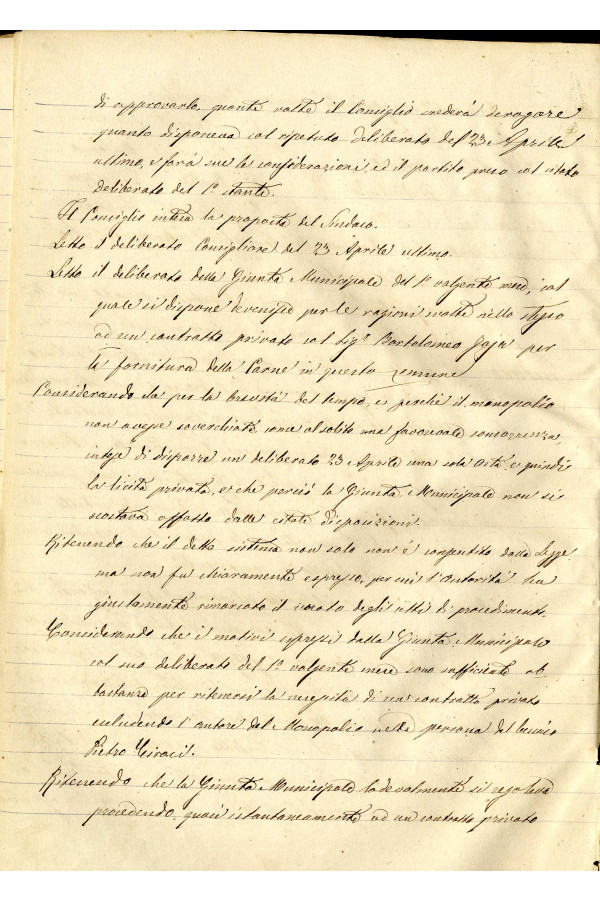 di approvarlo, quante volte il Consiglio crederà derogare
quanto disponeva col ripetuto deliberato del 23 Aprile
ultimo, e farà sue le considerazioni, ed il partito preso col citato
deliberato del 1º stante.
Il Consiglio intesa la proposta del Sindaco.
Letto il deliberato Consigliare del 23 Aprile ultimo.
Letto il deliberato della Giunta Municipale del 1º volgente mese, col
quale si dispone devenirsi per le ragioni svolte nello stesso
ad un contratto privato col Sigr Bartolomeo Jaja per
la fornitura della Carne in questo Comune
Considerando che per la brevità del tempo, e perchè il monopolio
non avesse soverchiato come al solito una favorevole concorrenza,
intese di disporre un deliberato 23 Aprile una sola asta e quindi
la licita privata, e che perciò la Giunta Municipale non si
scostava affatto dalle citate disposizioni.
Ritenendo che il detto sistema non solo non è consentito dalla Legge
ma non fu chiaramente espresso, per cui l'Autorità ha
giustamente rimarcato il vuoto degli atti di procedimenti.
Considerando che i motivi espressi dalla Giunta Municipale
col suo deliberato del 1º volgente mese sono sufficienti ab
bastanza per ritenersi la necessità di un contratto privato
escludendo l'autore del Monopolio nella persona del
Pietro
Ritenendo che la Giunta Municipale lodevolmente si regolava
procedendo quasi istantaneamente ad un contratto privato